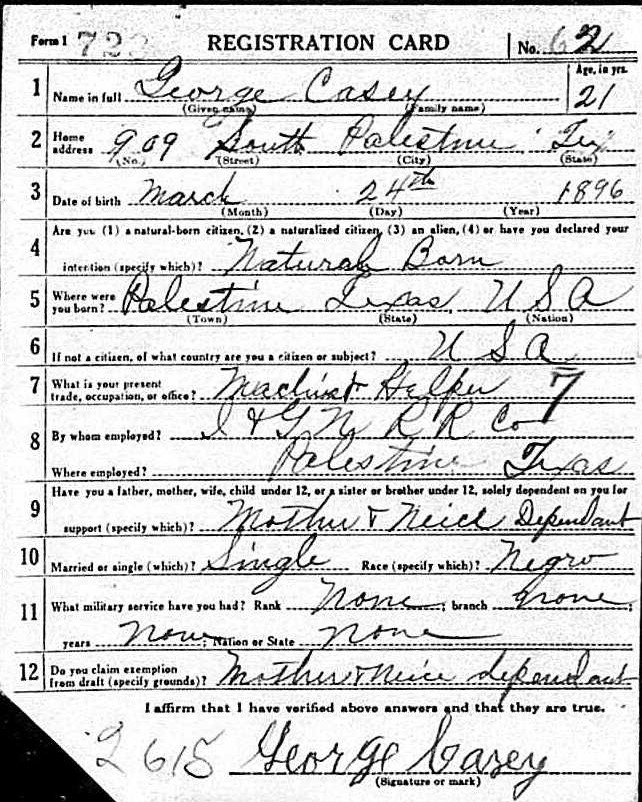 Form 1 723 REGISTRATION CARD No. 62
1 Name in full George Casey Age, in yrs. 21
(Given name) (Family name)
2 Home address 909 South Palestine Tex
(No.) (Street) (City) (State)
3 Date of birth March 24th 1896
(Month) (Day) (Year)
4 Are you (1) a natural-born citizen, (2) a naturalized citizen, (3) an alien, (4) or have you declared your
intention (specify which)? Natural Born
5 Where were you born? Palestine Texas, U S A
(Town) (State) (Nation)
6 If not a citizen, of what country are you a citizen or subject? U S A
7 What is your present trade, occupation, or office? Machinist Helper 7
8 By whom employed? I & G N R R Co
Where employed? Palestine Texas
9 Have you a father, mother, wife, child under 12, or a sister or brother under 12, solely dependent on you for
support (specify which)? Mother & Neice Dependant
10 Married or single (which)? Single Race (specify which)? Negro
11 What military service have you had? Rank None; branch None;
years None; Nation or State None
12 Do you claim exemption from draft (specify grounds)? Mother & Neice dependant
I affirm that I have verified above answers and that they are true.
2615 George Casey
(Signature or mark)